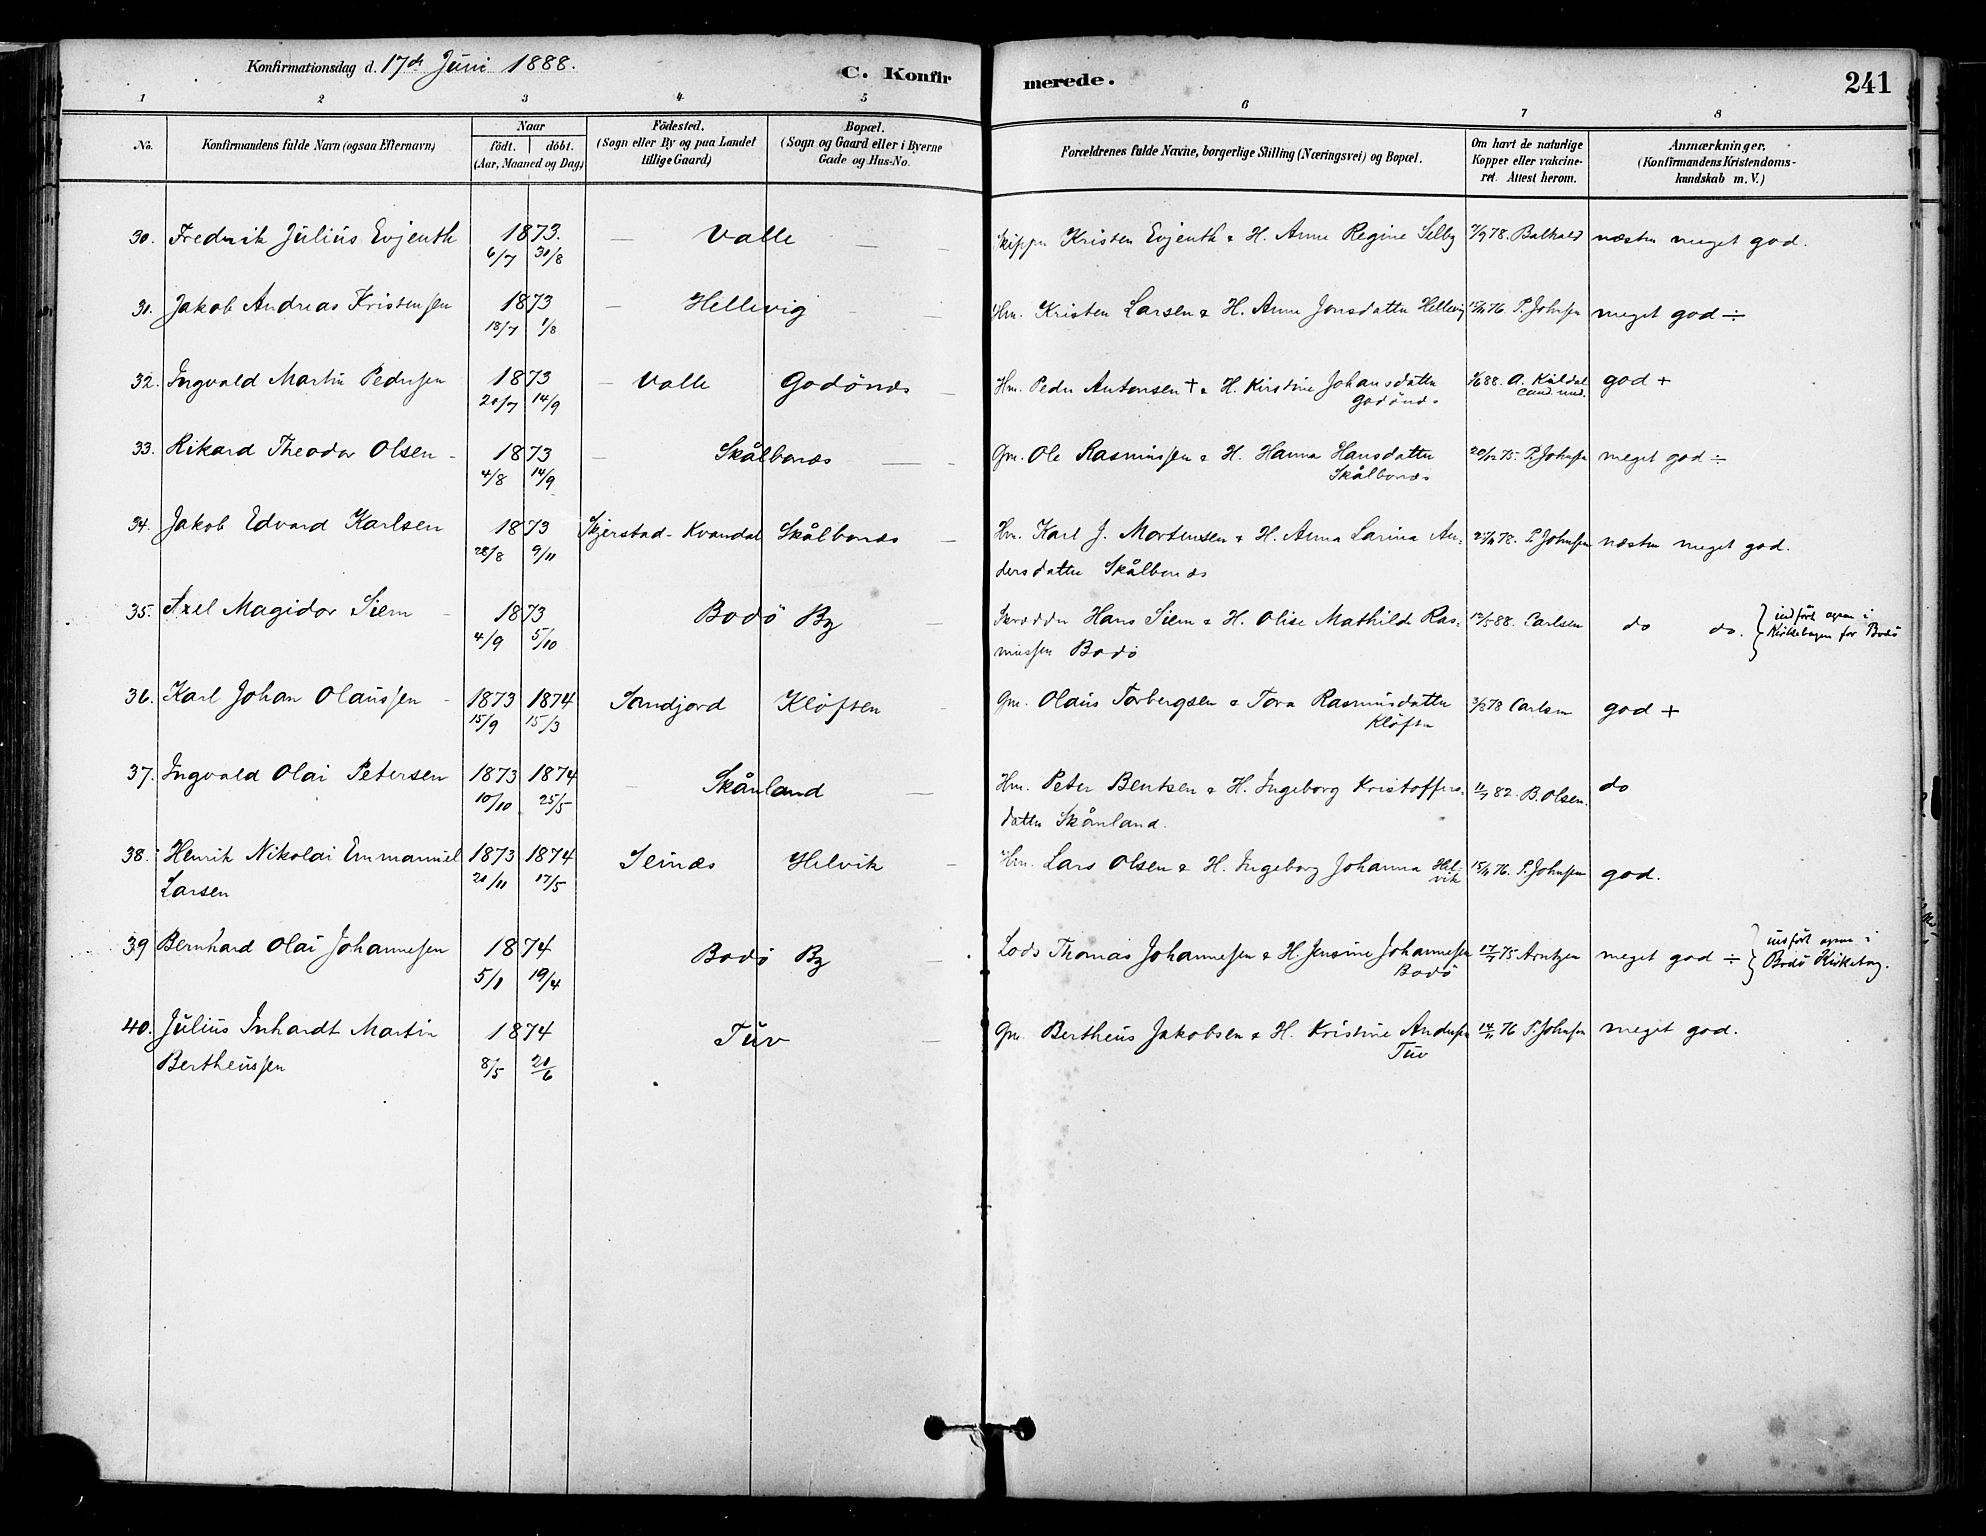 Konfirmationsdag d. 17de Juni 1888.
C. Konfirmerede.
241
1 2 3 4 5 6 7 8
No.
Konfirmandens fulde Navn (ogsaa Efternavn)
Naar
födt. döbt.
(Aar, Maaned og Dag)
Födested.
(Sogn eller By og paa Landet
tillige Gaard)
Bopæl.
(Sogn og Gaard eller i Byerne
Gade og Hus-No.
Forældrenes fulde Navne, borgerlige Stilling (Næringsvei) og Bopæl.
Om havt de naturlige
Kopper eller vakcine-
ret. Attest herom.
Anmærkninger.
(Konfirmandens Kristendoms-
kundskab m. V.)
30. Fredrik Julius Evjenth 1873. — Valle — — Skipper Kristen Evjenth & H. Anne Regine Selby 7/9 78. næsten meget god.
6/7 30/8
31. Jakob Andreas Kristensen 1873 — Hellevig — — Hm. Kristen Larsen & H. Anne Jonsdatter Hellevig 76. P. Johnsen meget god ÷
18/7 1/8
32. Ingvald Martin Pedersen 1873 — Valle Godönes — Hm. Peder Antonsen † & H. Kirstine Johansdatter 88. A. Kuldal god +
20/7 14/9 Godönes cand. med.
33. Rikard Theodor Olsen - 1873 — Skålbones — — Gm. Ole Rasmussen & H. Hanna Hansdatter 20/12 75. P. Johnsen meget god ÷
4/8 14/9 Skålbones
34. Jakob Edvard Karlsen 1873 Skjerstad - Kvandal Skålbones — Hm. Karl J. Mortensen & H. Anna Larina An- 78. P. Johnsen næsten meget god.
28/8 9/11 dersdatter Skålbones
35. Axel Magidor Siem - 1873 Bodö By Skrædder Hans Siem & H. Olise Mathilde Ras- 12/5 88. Carlsen do do. } indfört ogsaa i
4/9 5/10 mussen Bodö Kirkebogen for Bodö
36. Karl Johan Olaussen - 1873 1874 Sandjord Klöften - Gm. Olaus Torbergsen & Tora Rasmusdatter 78 Carlsen god +
15/9 15/3 Klöften
37. Ingvald Olai Petersen 1873 1874 — Skånland — Hm. Peter Bentsen & H. Ingeborg Kristoffers- 82. B. Olsen. do
10/10 25/5 datter Skånland.
38. Henrik Nikolai Emmanuel 1873 1874 Seines Helvik — Hm. Lars Olsen & H. Ingeborg Johanna Hel- 76. P. Johnsen god.
Larsen 20/11 17/5 vik
39 Bernhard Olai Johannesen 1874 Bodö By — Lods Thomas Johannesen & H. Jensine Johannesen 75 Arntzen meget god ÷ } indfört ogsaa i
5/1 19/4 Bodö Bodö Kirkebog.
40. Julius Inhardt Martin 1874 Tuv — Gm. Bertheus Jakobsen & H. Kristine Andersen 76 P. Johnsen meget god.
Bertheussen 8/5 21/6 Tuv